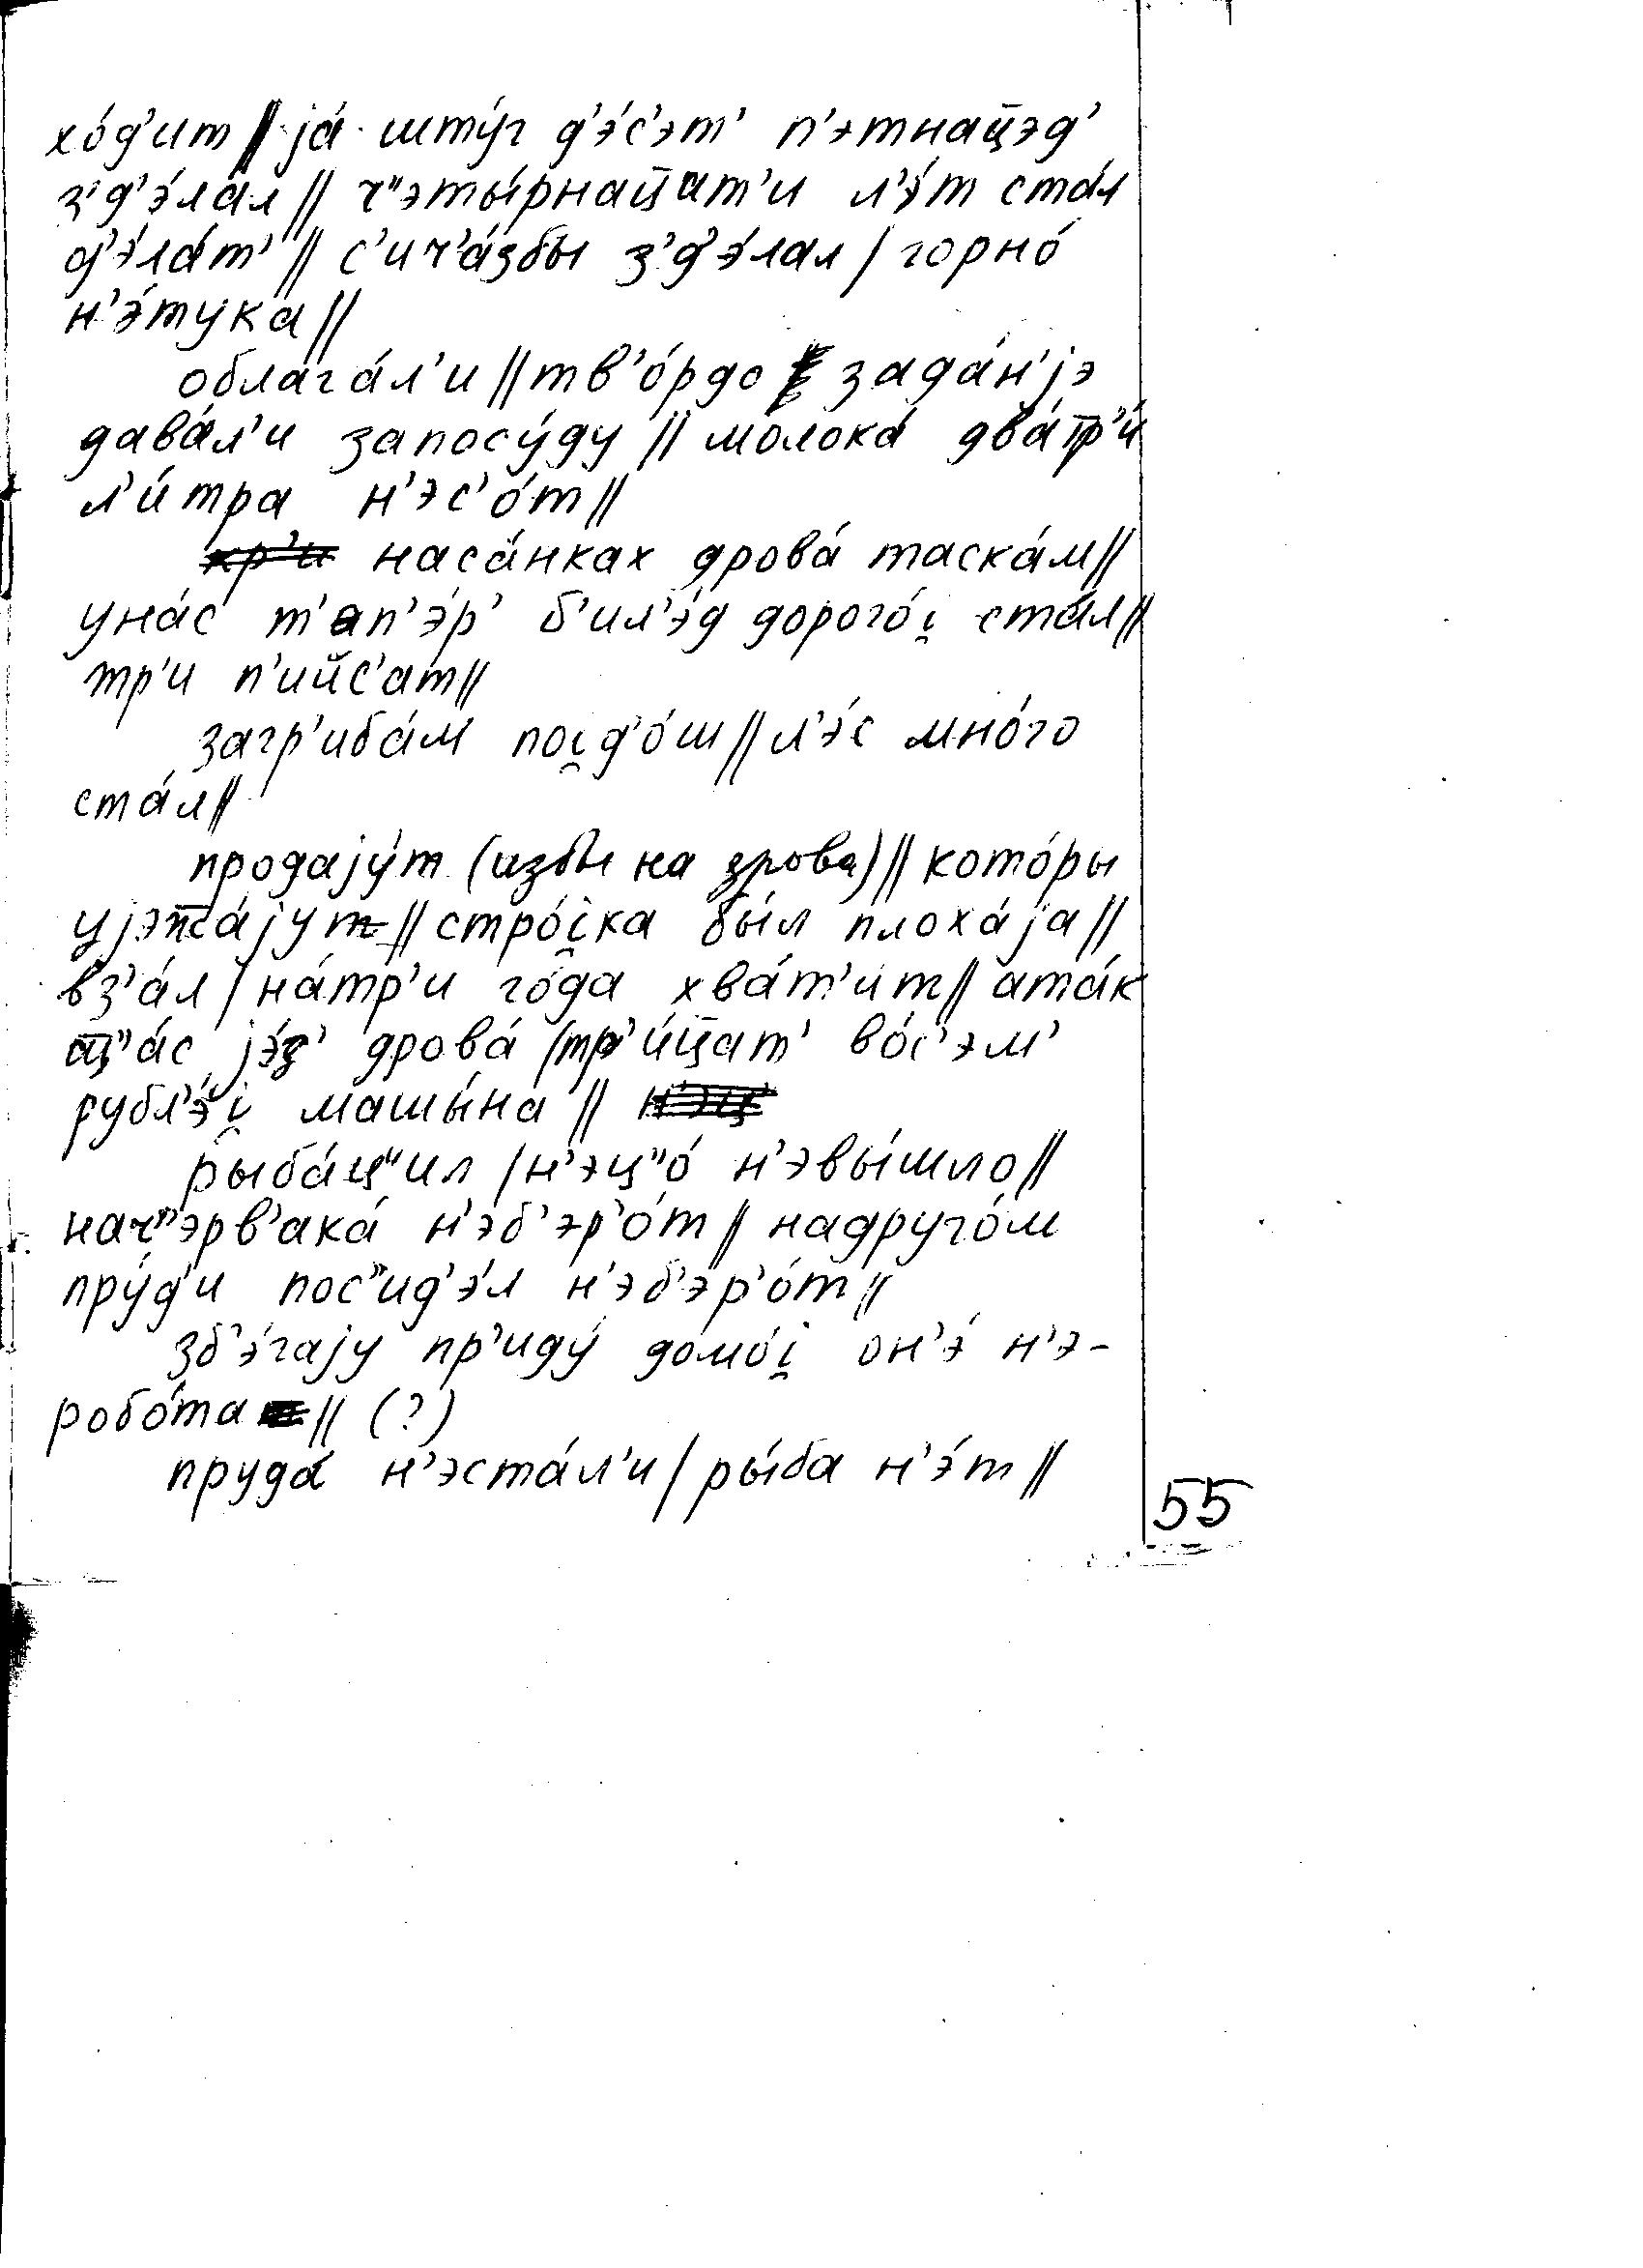 хо́д’ит || jа́ шту́г д’э́с’эт’ п’этнац̅эд’
з’д’э́лал || ч”эты́рнац̅ат’и л’э́т ста́л
д’э́лат’ || с’ич’а́збы з’д’э́лал | горно́
н’э́тука ||
облага́л’и || тв’о́рдо зада́н’jэ
дава́л’и запосу́ду || молока́ два́тр’и́
л’и́тра н’эс’о́т ||
наса́нках дрова́ таска́м ||
уна́с т’ап’э́р’ б’ил’э́д дорого́i̯ ста́л ||
тр’и п’ийс’ат ||
загр’иба́м поi̯д’о́ш || л’э́с мно́го
ста́л ||
продаjу́т (избы на дрова) || кото́ры
уjэжа́jут || стро́i̯ка бы́л плоха́jа ||
вз’а́л | на́тр’и го́да хва́т’ит || ата́к
щ”а́с jэ́з’ дрова́ | тр’и́ц̅ат’ во́с’эм’
рубл’э́i̯ машы́на ||
рыба́ц”ил | н’эц”о́ н’эвы́шло ||
нач”эрв’ака́ н’эб’эр’о́т || надруго́м
пру́д’и пос”ид’э́л н’эб’эр’о́т ||
зб’э́гаjу пр’иду́ домо́i̯ он’э́ н’э-
робо́та || (?)
пруда́ н’эста́л’и | ры́ба н’э́т ||
55